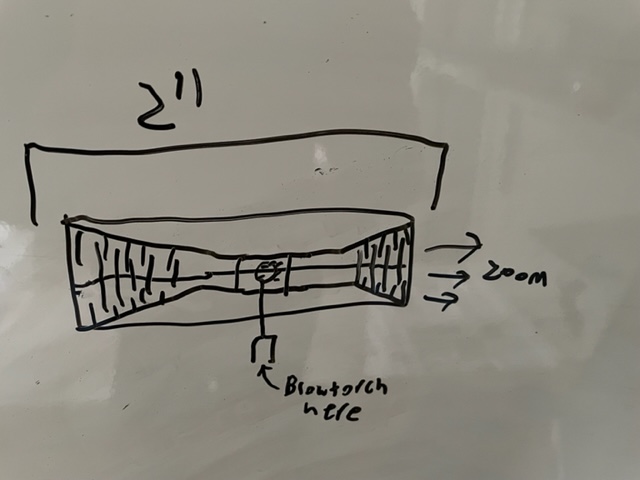 2"
Zoom
Blowtorch
here